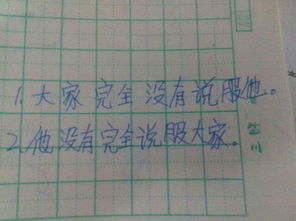 1.大家完全没有说服他。
2.他没有完全说服大家。